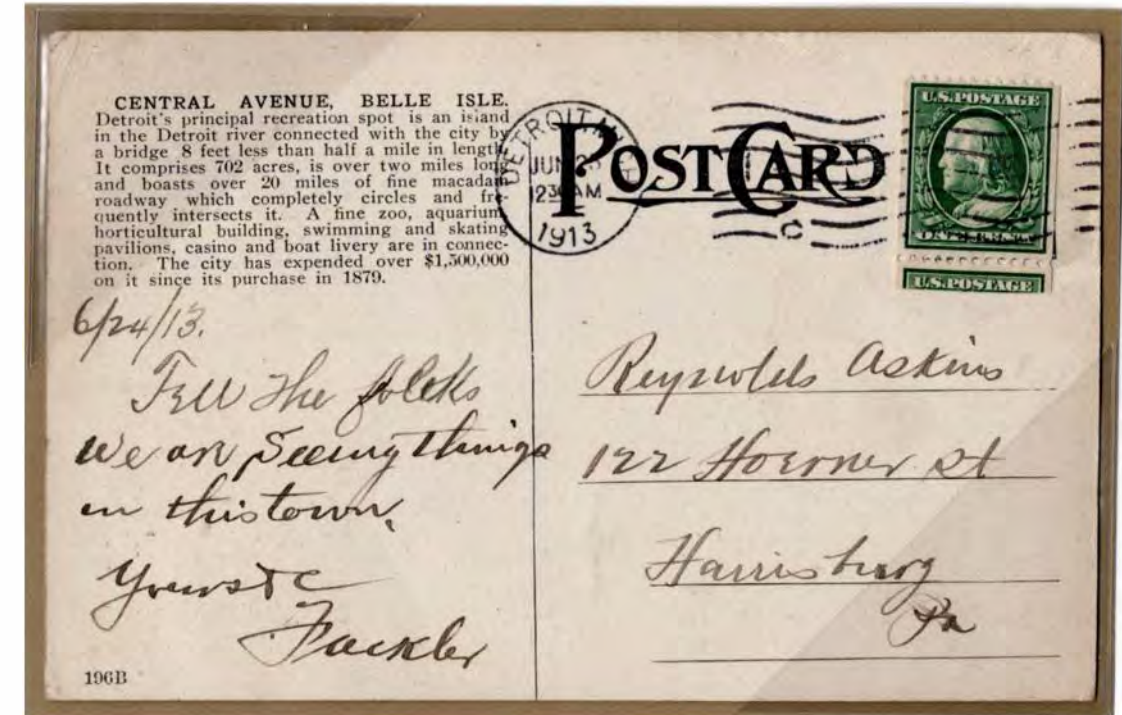 CENTRAL AVENUE, BELLE ISLE.
Detroit's principal recreation spot is an island
in the Detroit river connected with the city by
a bridge 8 feet less than half a mile in length.
It comprises 702 acres, is over two miles long
and boasts over 20 miles of fine macadam
roadway which completely circles and fre-
quently intersects it. A fine zoo, aquarium,
horticultural building, swimming and skating
pavilions, casino and boat livery are in connec-
tion. The city has expended over $1,500,000
on it since its purchase in 1879.
6/24/13.
Tell the folks
We are Seeing things
in this town.
Yours &C
Fackler
196B
POST CARD
DETROIT, MICH.
JUN 25
1230 AM
1913
C
U.S. POSTAGE
U.S. POSTAGE
Reynolds Askins
122 Hoerner St
Harrisburg
Pa